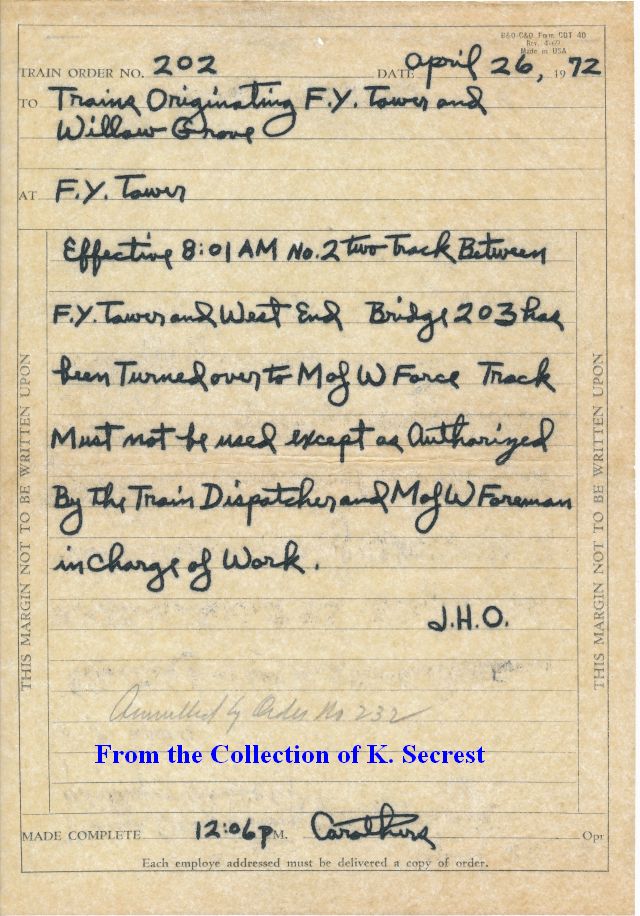 B&O-C&O Form CDT 40
Rev. 4-69
Made in USA
TRAIN ORDER NO. 202 DATE April 26, 1972
TO Trains Originating F.Y. Tower and
Willow Grove
AT F.Y. Tower
Effective 8:01 AM No. 2 two Track Between
F.Y. Tower and West End Bridge 203 has
been Turned over to M of W Force Track
Must not be used except as Authorized
By the Train Dispatcher and M of W Foreman
in Charge of Work.
J.H.O.
THIS MARGIN NOT TO BE WRITTEN UPON
THIS MARGIN NOT TO BE WRITTEN UPON
Annulled by Order No 232
From the Collection of K. Secrest
MADE COMPLETE 12:06 P M. Carothers Opr
Each employe addressed must be delivered a copy of order.